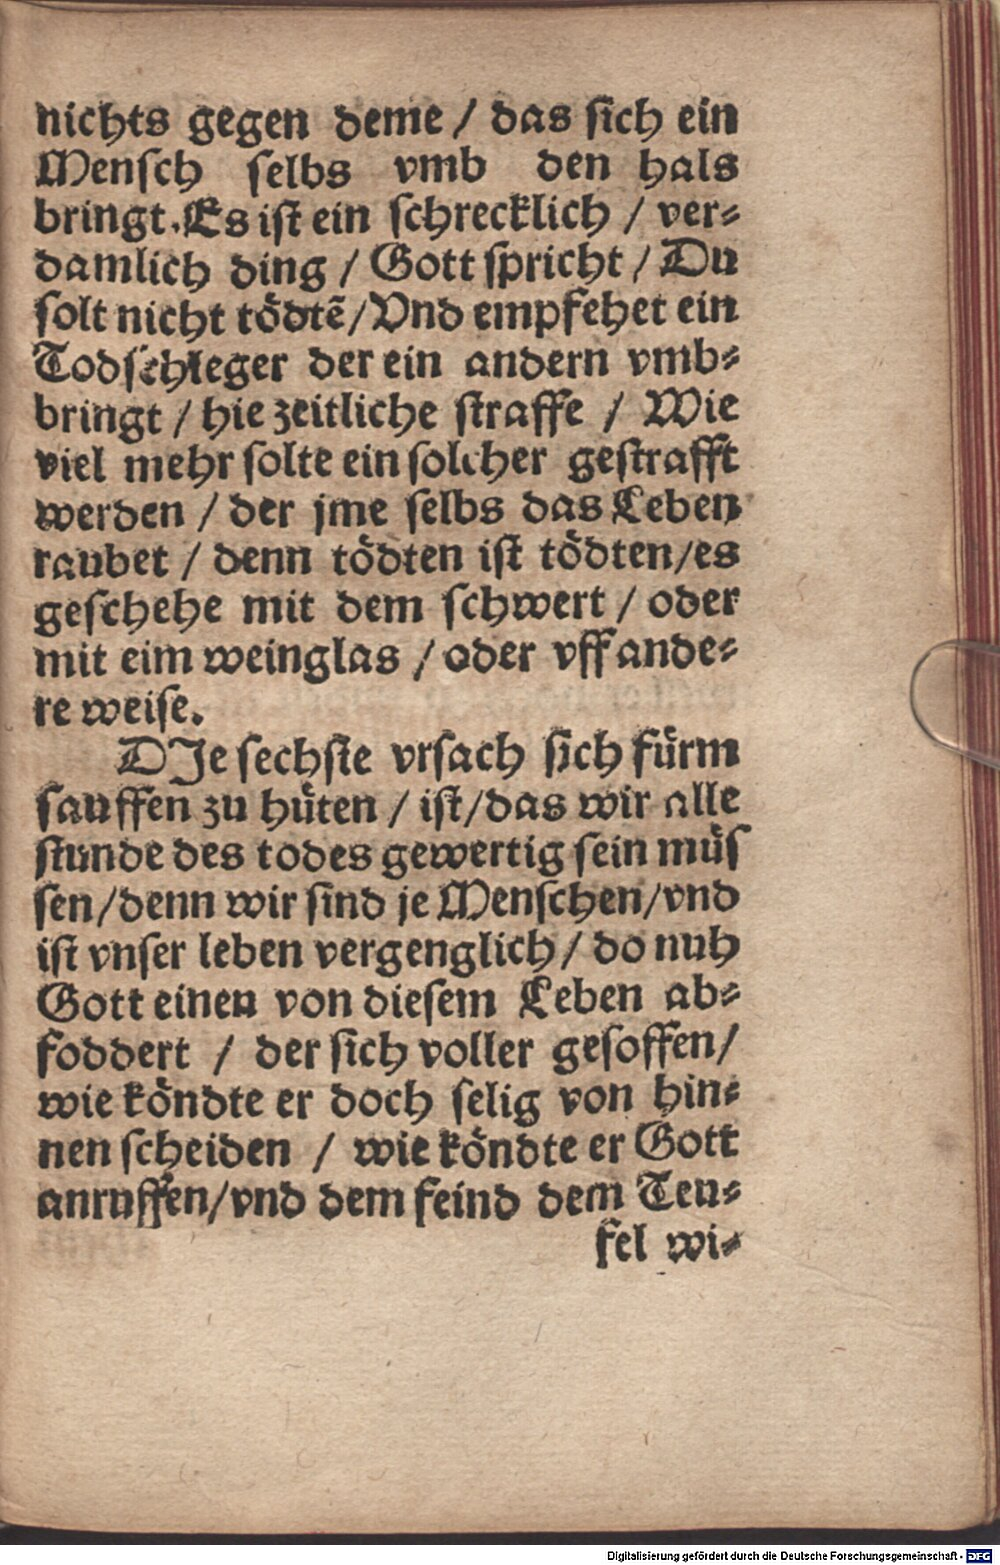 nichts gegen deme / das sich ein
Mensch selbs vmb den hals
bringt. Es ist ein schrecklich / ver⸗
damlich ding / Gott spricht / Du
solt nicht tödtē / Vnd empfehet ein
Todschleger der ein andern vmb⸗
bringt / hie zeitliche straffe / Wie
viel mehr solte ein solcher gestrafft
werden / der jme selbs das Leben
raubet / denn tödten ist tödten / es
geschehe mit dem schwert / oder
mit eim weinglas / oder vff ande⸗
re weise.
DJe sechste vrsach sich fürm
sauffen zu hüten / ist / das wir alle
stunde des todes gewertig sein müs
sen / denn wir sind je Menschen / vnd
ist vnser leben vergenglich / do nuh
Gott einen von diesem Leben ab⸗
foddert / der sich voller gesoffen /
wie köndte er doch selig von hin⸗
nen scheiden / wie köndte er Gott
anruffen / vnd dem feind dem Teu⸗
fel wi⸗
Digitalisierung gefördert durch die Deutsche Forschungsgemeinschaft - DFG